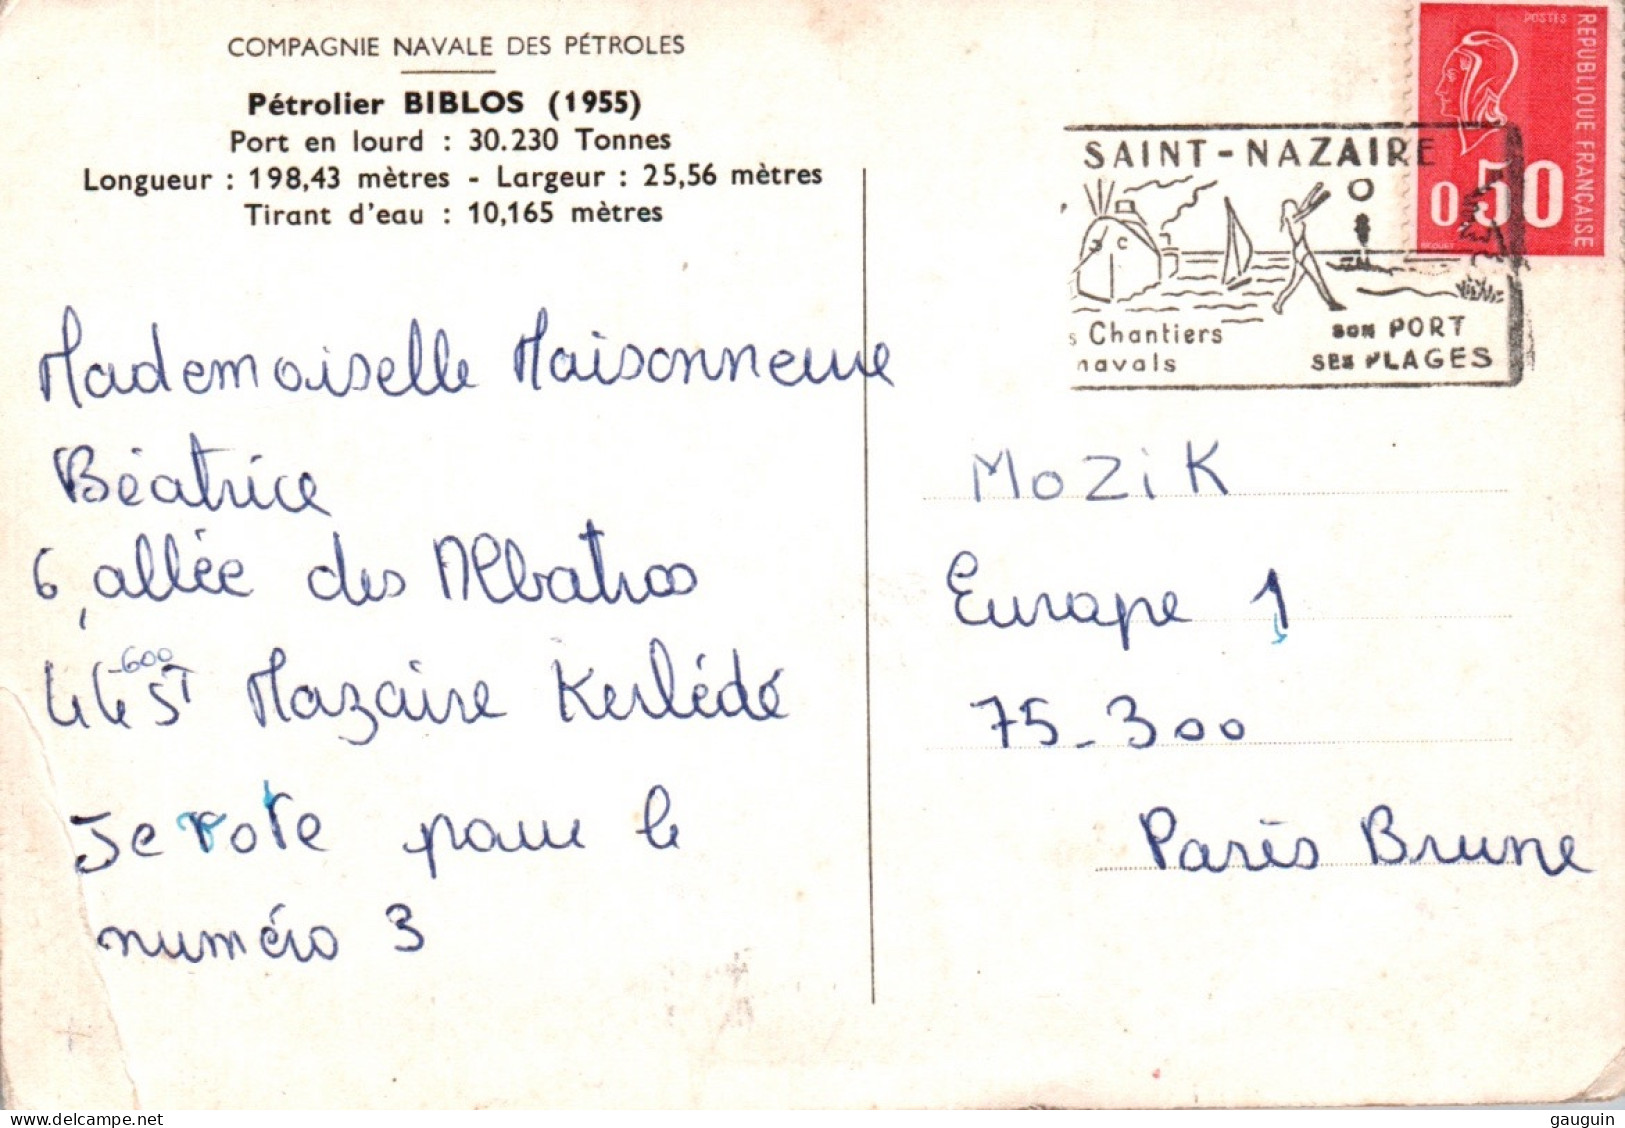 COMPAGNIE NAVALE DES PÉTROLES
Pétrolier BIBLOS (1955)
Port en lourd : 30.230 Tonnes
Longueur : 198,43 mètres - Largeur : 25,56 mètres
Tirant d'eau : 10,165 mètres
Mademoiselle Maisonneuve
Béatrice
6, allée des Albatros
44-600 ST Nazaire Kerlédé
Je vote pour le
numéro 3
POSTES
REPUBLIQUE FRANÇAISE
0,50
BEQUET
SAINT-NAZAIRE
s Chantiers
navals
SON PORT
SES PLAGES
MoZiK
Europe 1
75-300
Paris Brune
gauguin © delcampe.net